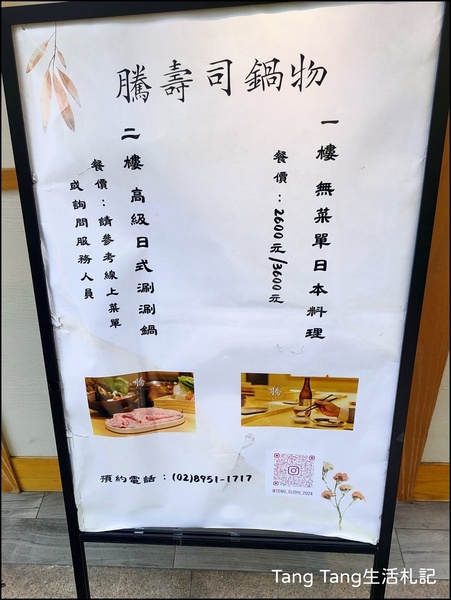 騰壽司鍋物
一樓 無菜單日本料理
餐價：2600元/3600元
二樓 高級日式涮涮鍋
餐價：請參考線上菜單
或詢問服務人員
預約電話：(02)8951-1717
@TENG_SUSHI_2024
Tang Tang生活札記